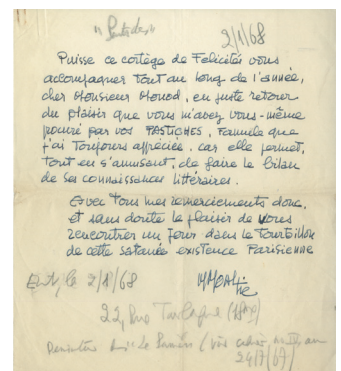 2/1/68
Puisse ce cortège de Felicités vous
accompagner tout au long de l'année,
cher Monsieur Monod, en juste retour
du plaisir que vous m'avez vous-même
procuré par vos PASTICHES, Formule que
j'ai toujours appréciée, car elle permet,
tout en s'amusant, de faire le bilan
de ses connaissances littéraires.
Avec tous mes remerciements donc,
et sans doute le plaisir de vous
rencontrer un jour dans le Tourbillon
de cette satanée existence Parisienne
le 2/1/68
22, Rue
24/7/67)